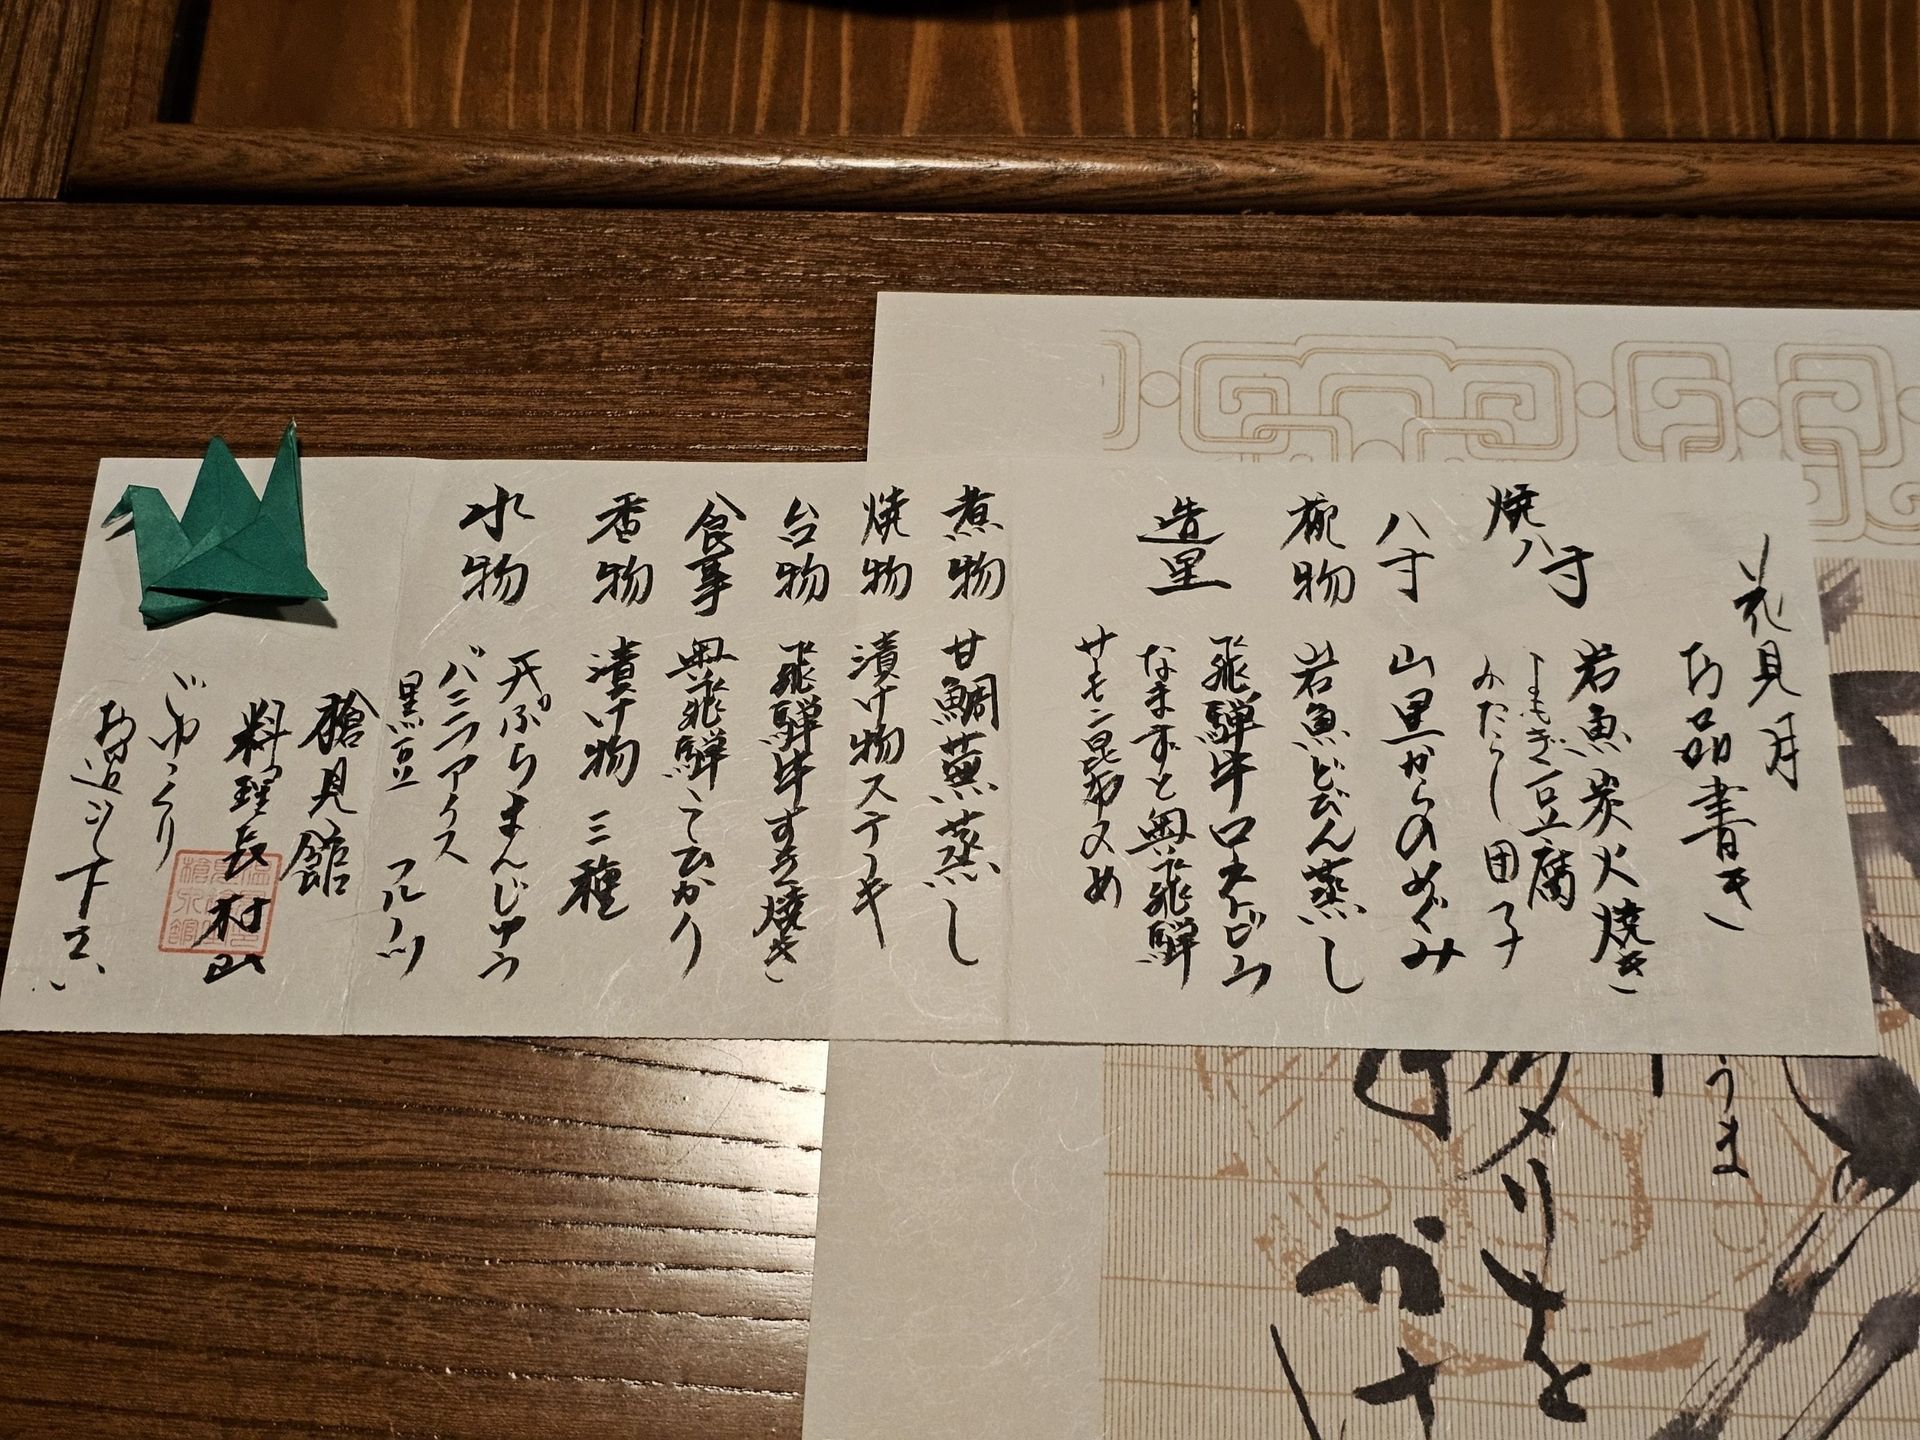 花見月
お品書き
焼八寸
岩魚炭火焼き
よもぎ豆腐
みたらし団子
八寸
山里からのめぐみ
椀物
岩魚どびん蒸し
造里
飛騨牛ロースビール
なまずと奥飛騨
サーモン昆布〆め
煮物
甘鯛蕪蒸し
焼物
漬け物ステーキ
台物
飛騨牛すき焼き
食事
奥飛騨こひかり
香物
漬け物 三種
水物
天ぷらまんじゅう
バニラアイス
黒豆 フルーツ
槍見館
料理長 村山
ごゆっくり
お召し下さい
うま
タリを
かけ